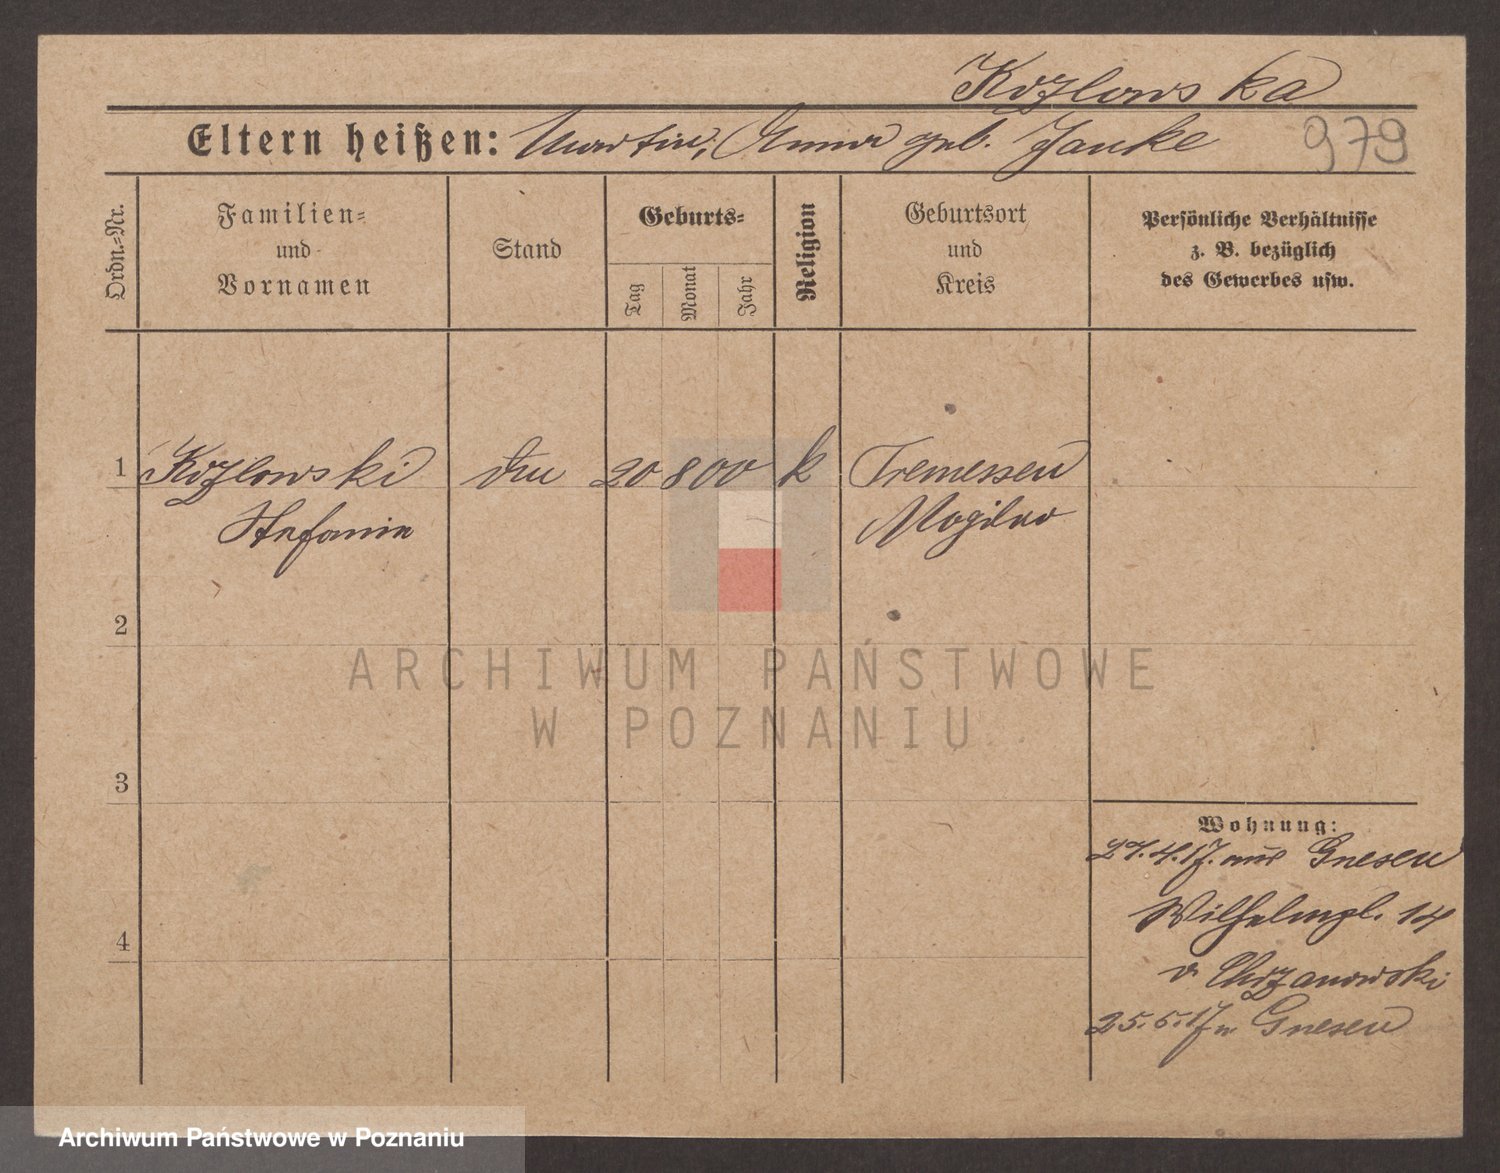 Kozlowska
Eltern heißen: Martin, Anna geb. Janke
979
Ordn.=Nr.
Familien=
und
Vornamen
Stand
Geburts=
Tag
Monat
Jahr
Religion
Geburtsort
und
Kreis
Persönliche Verhältnisse
z. B. bezüglich
des Gewerbes usw.
1 Kozlowski 20 8 00 k Tremessen
Stefanie Mogilno
2
ARCHIWUM PAŃSTWOWE
W POZNANIU
3
Wohnung:
27.4.17. aus Gnesen
Wilhelmpl. 14
v. Chrzanowski
4
25.5.17 n Gnesen
Archiwum Państwowe w Poznaniu